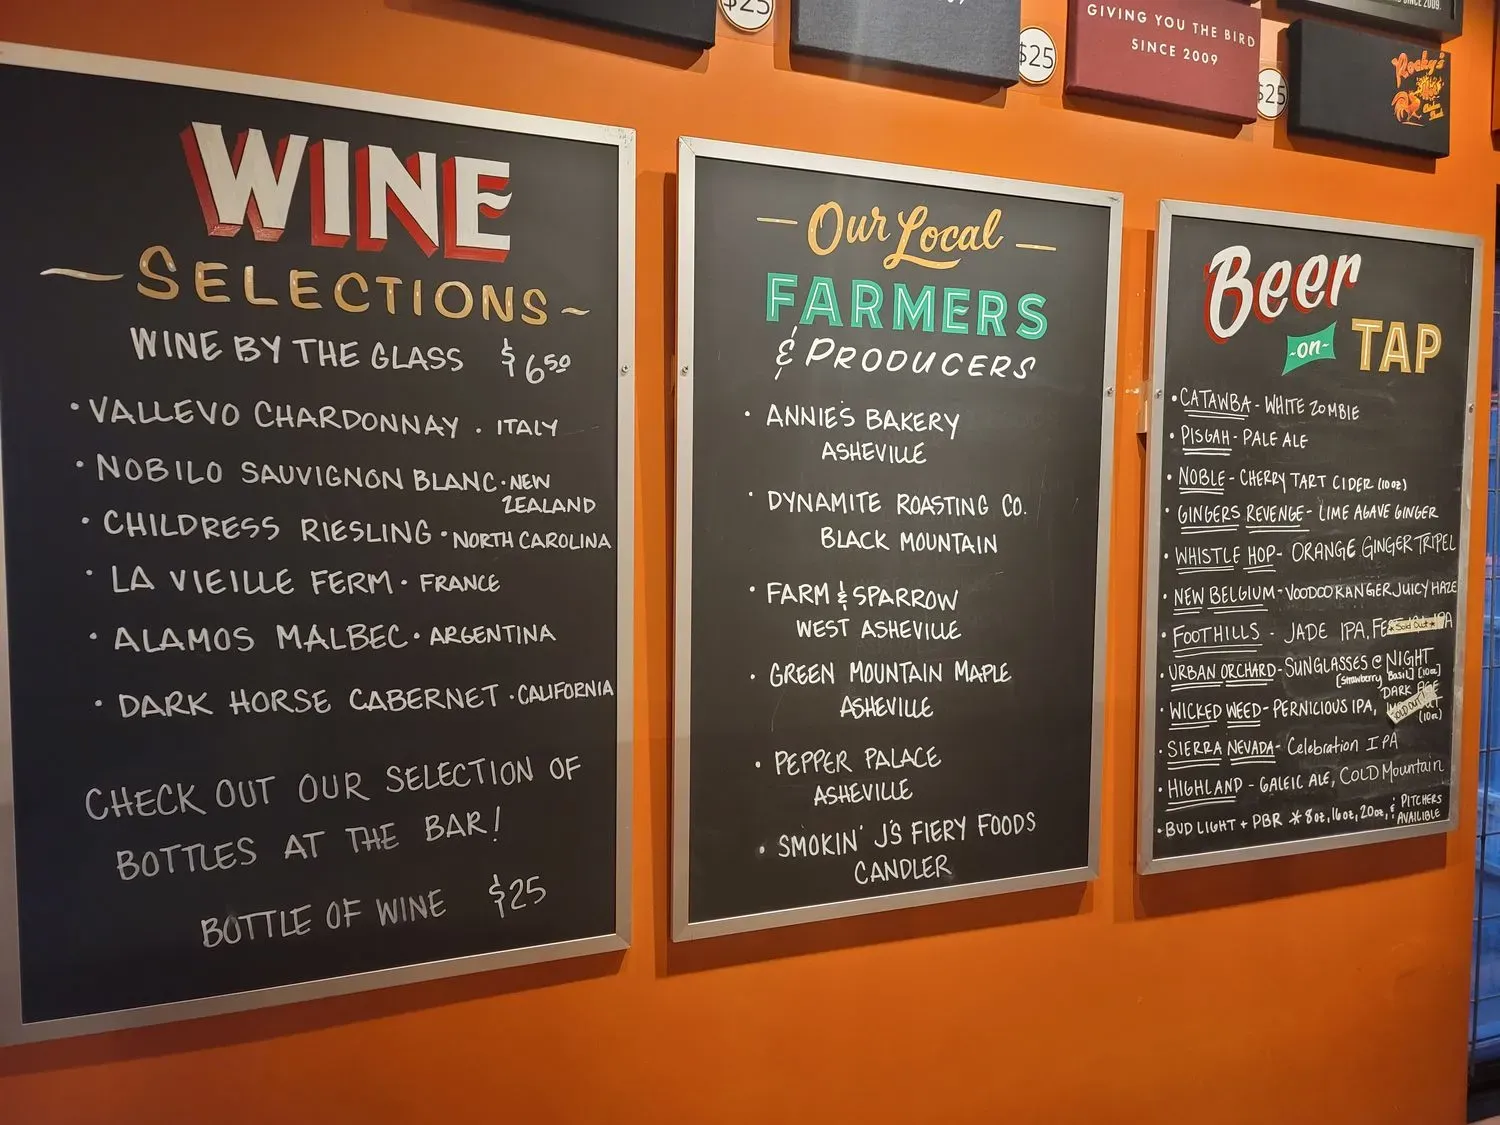 $25
$25
$25
GIVING YOU THE BIRD
SINCE 2009
SINCE 2009.
Rocky's
Hot
Chicken
Shack
WINE
~ SELECTIONS ~
WINE BY THE GLASS $6.50
• VALLEVO CHARDONNAY . ITALY
• NOBILO SAUVIGNON BLANC • NEW
ZEALAND
• CHILDRESS RIESLING • NORTH CAROLINA
• LA VIEILLE FERM • FRANCE
• ALAMOS MALBEC • ARGENTINA
• DARK HORSE CABERNET • CALIFORNIA
CHECK OUT OUR SELECTION OF
BOTTLES AT THE BAR!
BOTTLE OF WINE $25
— Our Local —
FARMERS
& PRODUCERS
• ANNIE'S BAKERY
ASHEVILLE
• DYNAMITE ROASTING CO.
BLACK MOUNTAIN
• FARM & SPARROW
WEST ASHEVILLE
• GREEN MOUNTAIN MAPLE
ASHEVILLE
• PEPPER PALACE
ASHEVILLE
• SMOKIN' J'S FIERY FOODS
CANDLER
Beer
-on- TAP
• CATAWBA - WHITE ZOMBIE
• PISGAH - PALE ALE
• NOBLE - CHERRY TART CIDER (10oz)
• GINGERS REVENGE - LIME AGAVE GINGER
• WHISTLE HOP - ORANGE GINGER TRIPEL
• NEW BELGIUM - VOODOO RANGER JUICY HAZE
• FOOTHILLS - JADE IPA, ★ Sold Out ★
• URBAN ORCHARD - SUNGLASSES @ NIGHT
[Strawberry Basil] [10oz]
• WICKED WEED - PERNICIOUS IPA, DARK AGE
SOLD OUT
(10oz)
• SIERRA NEVADA - Celebration IPA
• HIGHLAND - GALEIC ALE, COLD Mountain
• BUD LIGHT + PBR * 8oz, 16oz, 20oz, & PITCHERS
AVAILIBLE